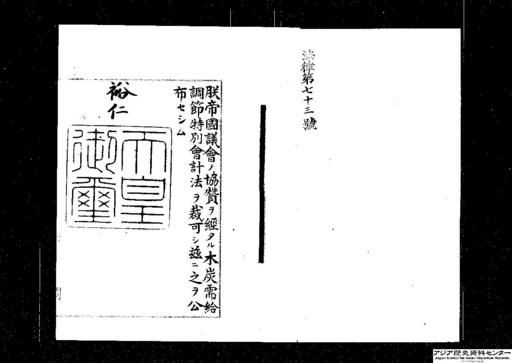 法律第七十三號
朕帝國議會ノ協贊ヲ經タル木炭需給
調節特別會計法ヲ裁可シ茲ニ之ヲ公
布セシム
裕仁
天皇
御璽
アジア歴史資料センター
Japan Center for Asian Historical Records